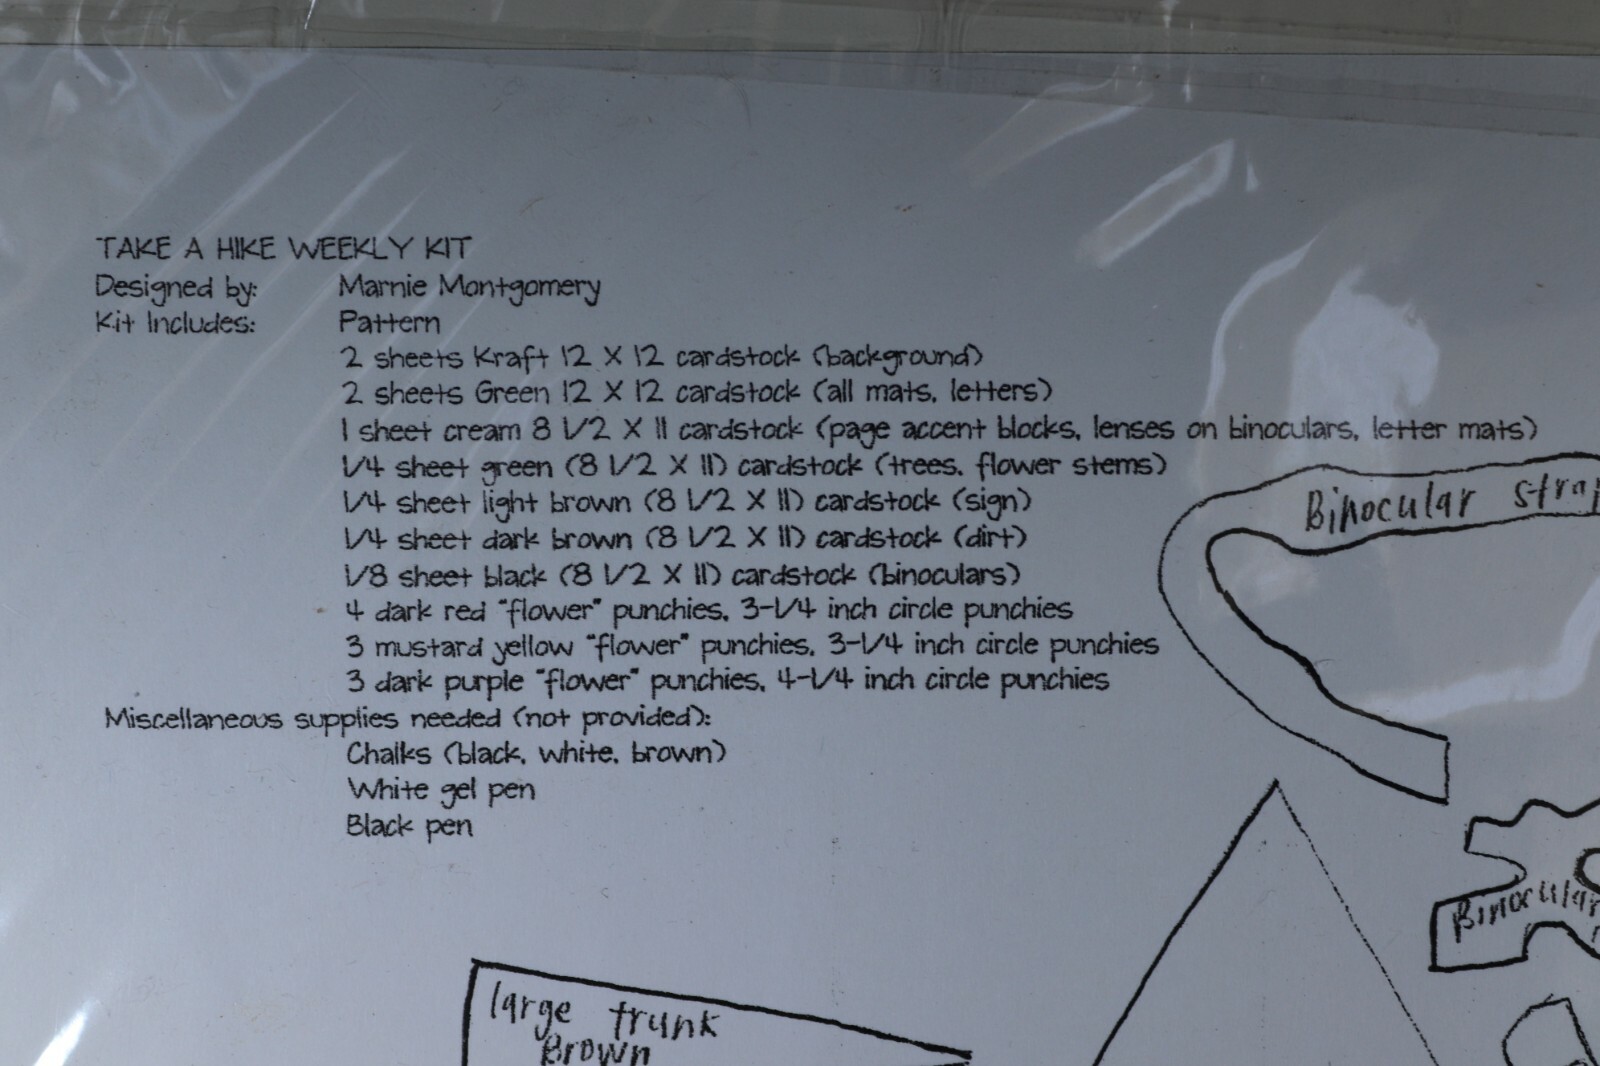 TAKE A HIKE WEEKLY KIT
Designed by: Marnie Montgomery
Kit Includes: Pattern
2 sheets Kraft 12 X 12 cardstock (background)
2 sheets Green 12 X 12 cardstock (all mats, letters)
1 sheet cream 8 1/2 X 11 cardstock (page accent blocks, lenses on binoculars, letter mats)
1/4 sheet green (8 1/2 X 11) cardstock (trees, flower stems)
1/4 sheet light brown (8 1/2 X 11) cardstock (sign)
1/4 sheet dark brown (8 1/2 X 11) cardstock (dirt)
1/8 sheet black (8 1/2 X 11) cardstock (binoculars)
4 dark red "flower" punchies, 3-1/4 inch circle punchies
3 mustard yellow "flower" punchies, 3-1/4 inch circle punchies
3 dark purple "flower" punchies, 4-1/4 inch circle punchies
Miscellaneous supplies needed (not provided):
Chalks (black, white, brown)
White gel pen
Black pen
Binocular strap
Binocular
large trunk
Brown